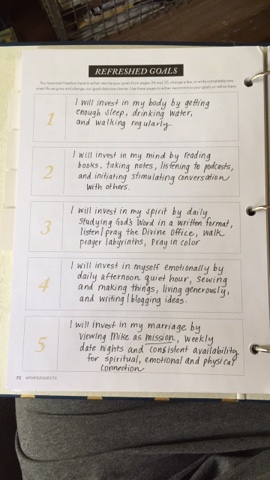 REFRESHED GOALS
1
I will invest in my body by getting
enough sleep, drinking water,
and walking regularly.
2
I will invest in my mind by reading
books, taking notes, listening to podcasts,
and initiating stimulating conversation
with others.
3
I will invest in my spirit by daily
studying God's Word in a written format,
listen/pray the Divine Office, walk
prayer labyrinths, pray in color
4
I will invest in myself emotionally by
daily afternoon quiet hour, sewing
and making things, living generously,
and writing/blogging ideas.
5
I will invest in my marriage by
viewing Mike as mission, weekly
date nights and consistent availability
for spiritual, emotional and physical
connection